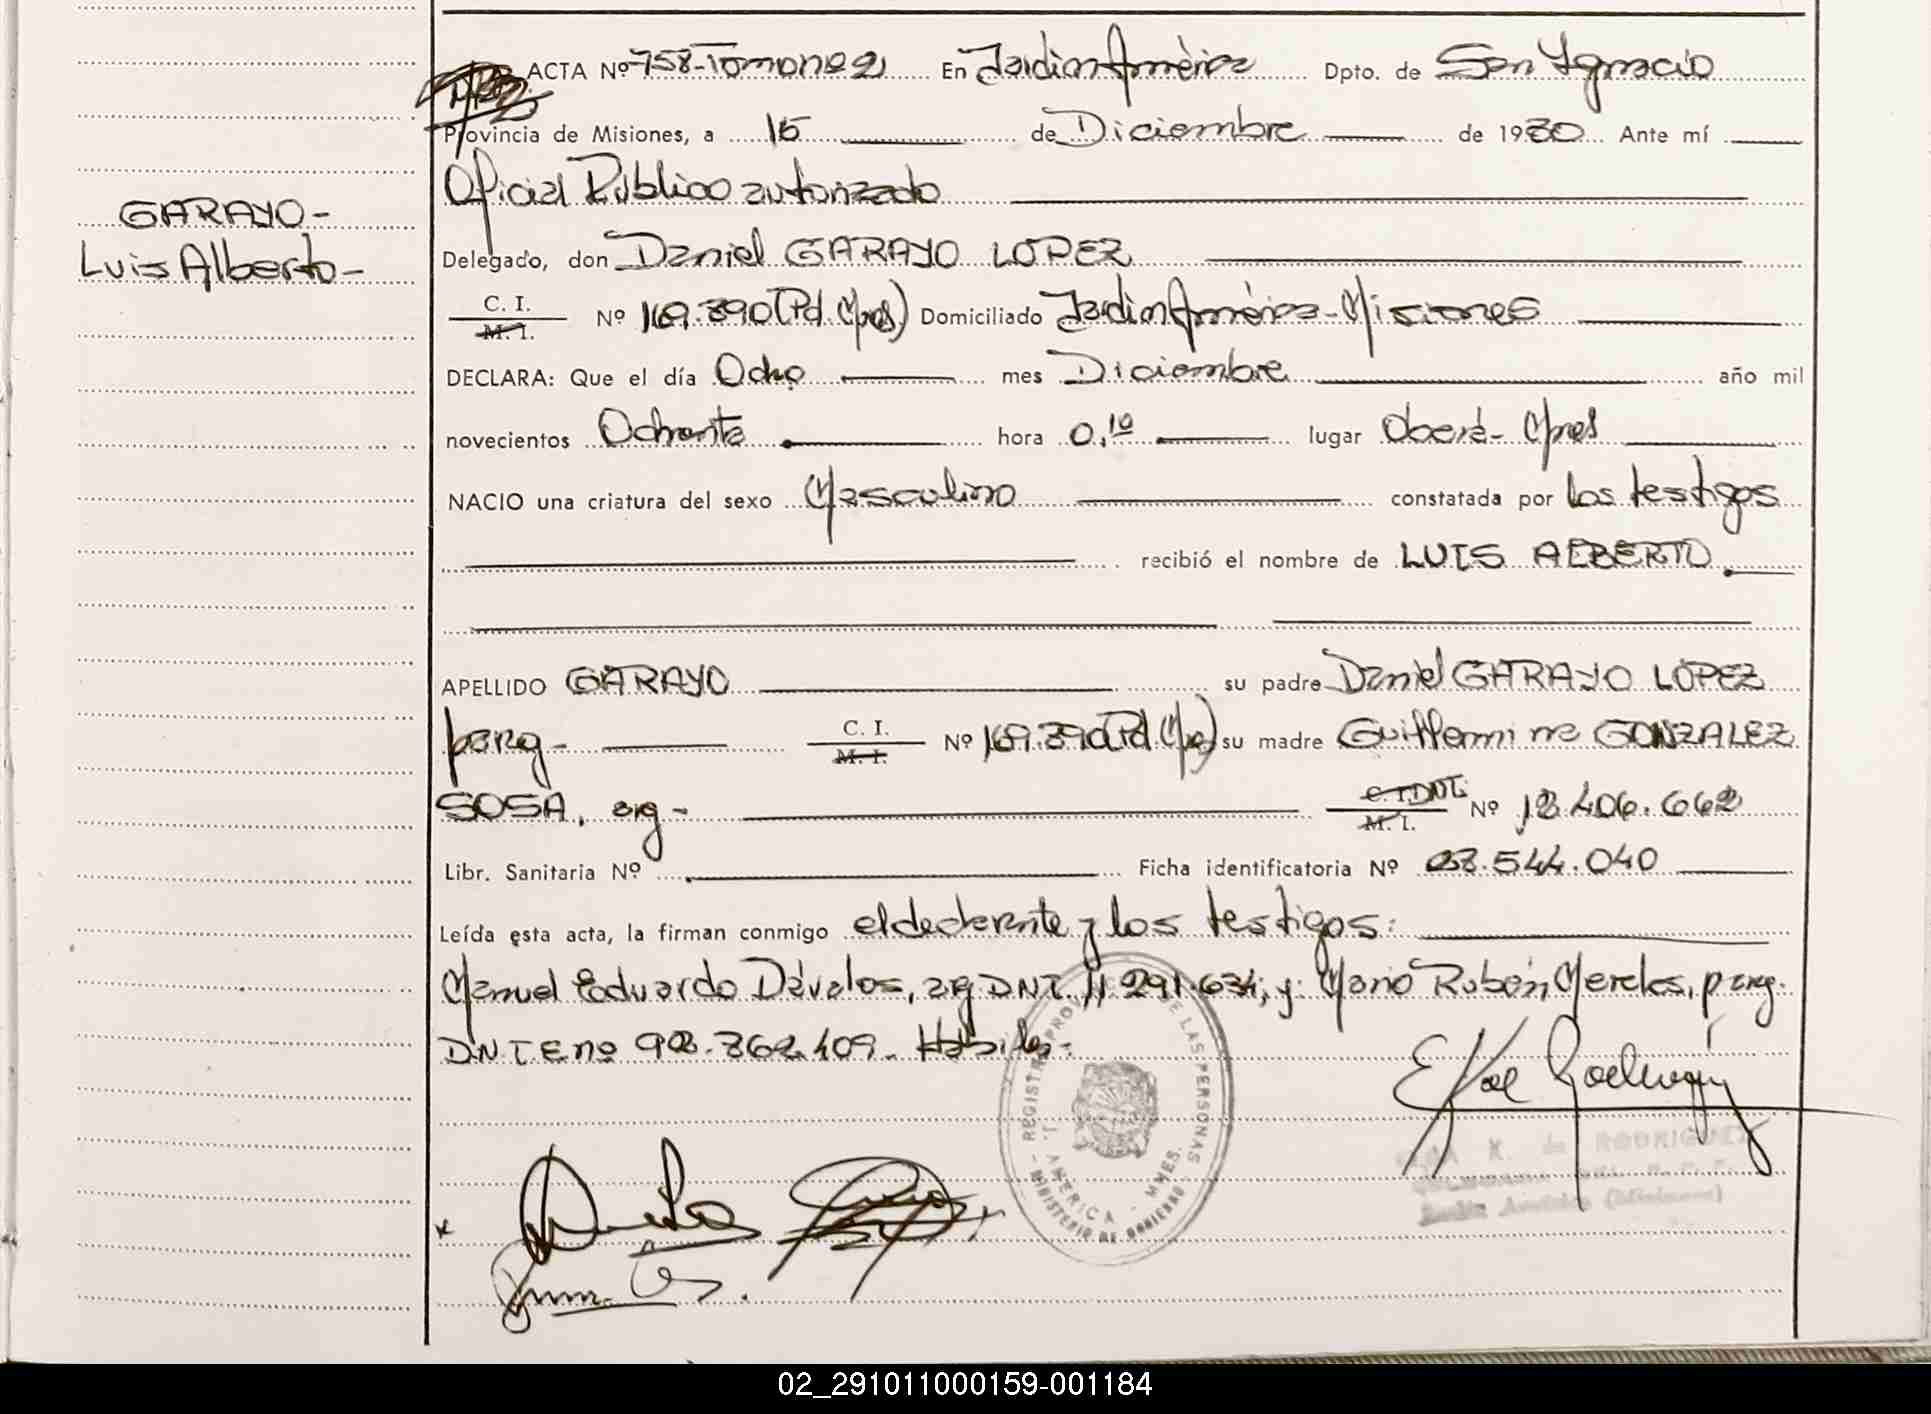 ACTA Nº 758-Tomo nº 2 En Jardin América Dpto. de San Ignacio
Provincia de Misiones, a 15 de Diciembre de 1980 Ante mí
Oficial Público autorizado
GARAYO-
Luis Alberto-
Delegado, don Daniel GARAYO LOPEZ
C. I.
M. I.
Nº 169.390 (Pd. Mnes) Domiciliado Jardin América-Misiones
DECLARA: Que el día Ocho mes Diciembre año mil
novecientos Ochenta hora 0,10 lugar Oberá- Mnes
NACIO una criatura del sexo Masculino constatada por los testigos
recibió el nombre de LUIS ALBERTO
APELLIDO GARAYO su padre Daniel GARAYO LOPEZ
parag- C. I. M. I. Nº 169.390 (Pd. Mnes) su madre Guillermina GONZALEZ
SOSA, arg- C. I. DNI. M. I. Nº 12.406.662
Libr. Sanitaria Nº Ficha identificatoria Nº 28.544.040
Leída esta acta, la firman conmigo el declarante y los testigos:
Manuel Eduardo Dávalos, arg DNI. 11.291.634, y Mario Rubén Mereles, parag.
DNIE nº 92.362.409. Hábiles-
REGISTRO PROV. DE LAS PERSONAS
J. AMERICA - MNES.
- MINISTERIO DE GOBIERNO -
K. de RODRIGUEZ
Jardín América (Misiones)
02_291011000159-001184